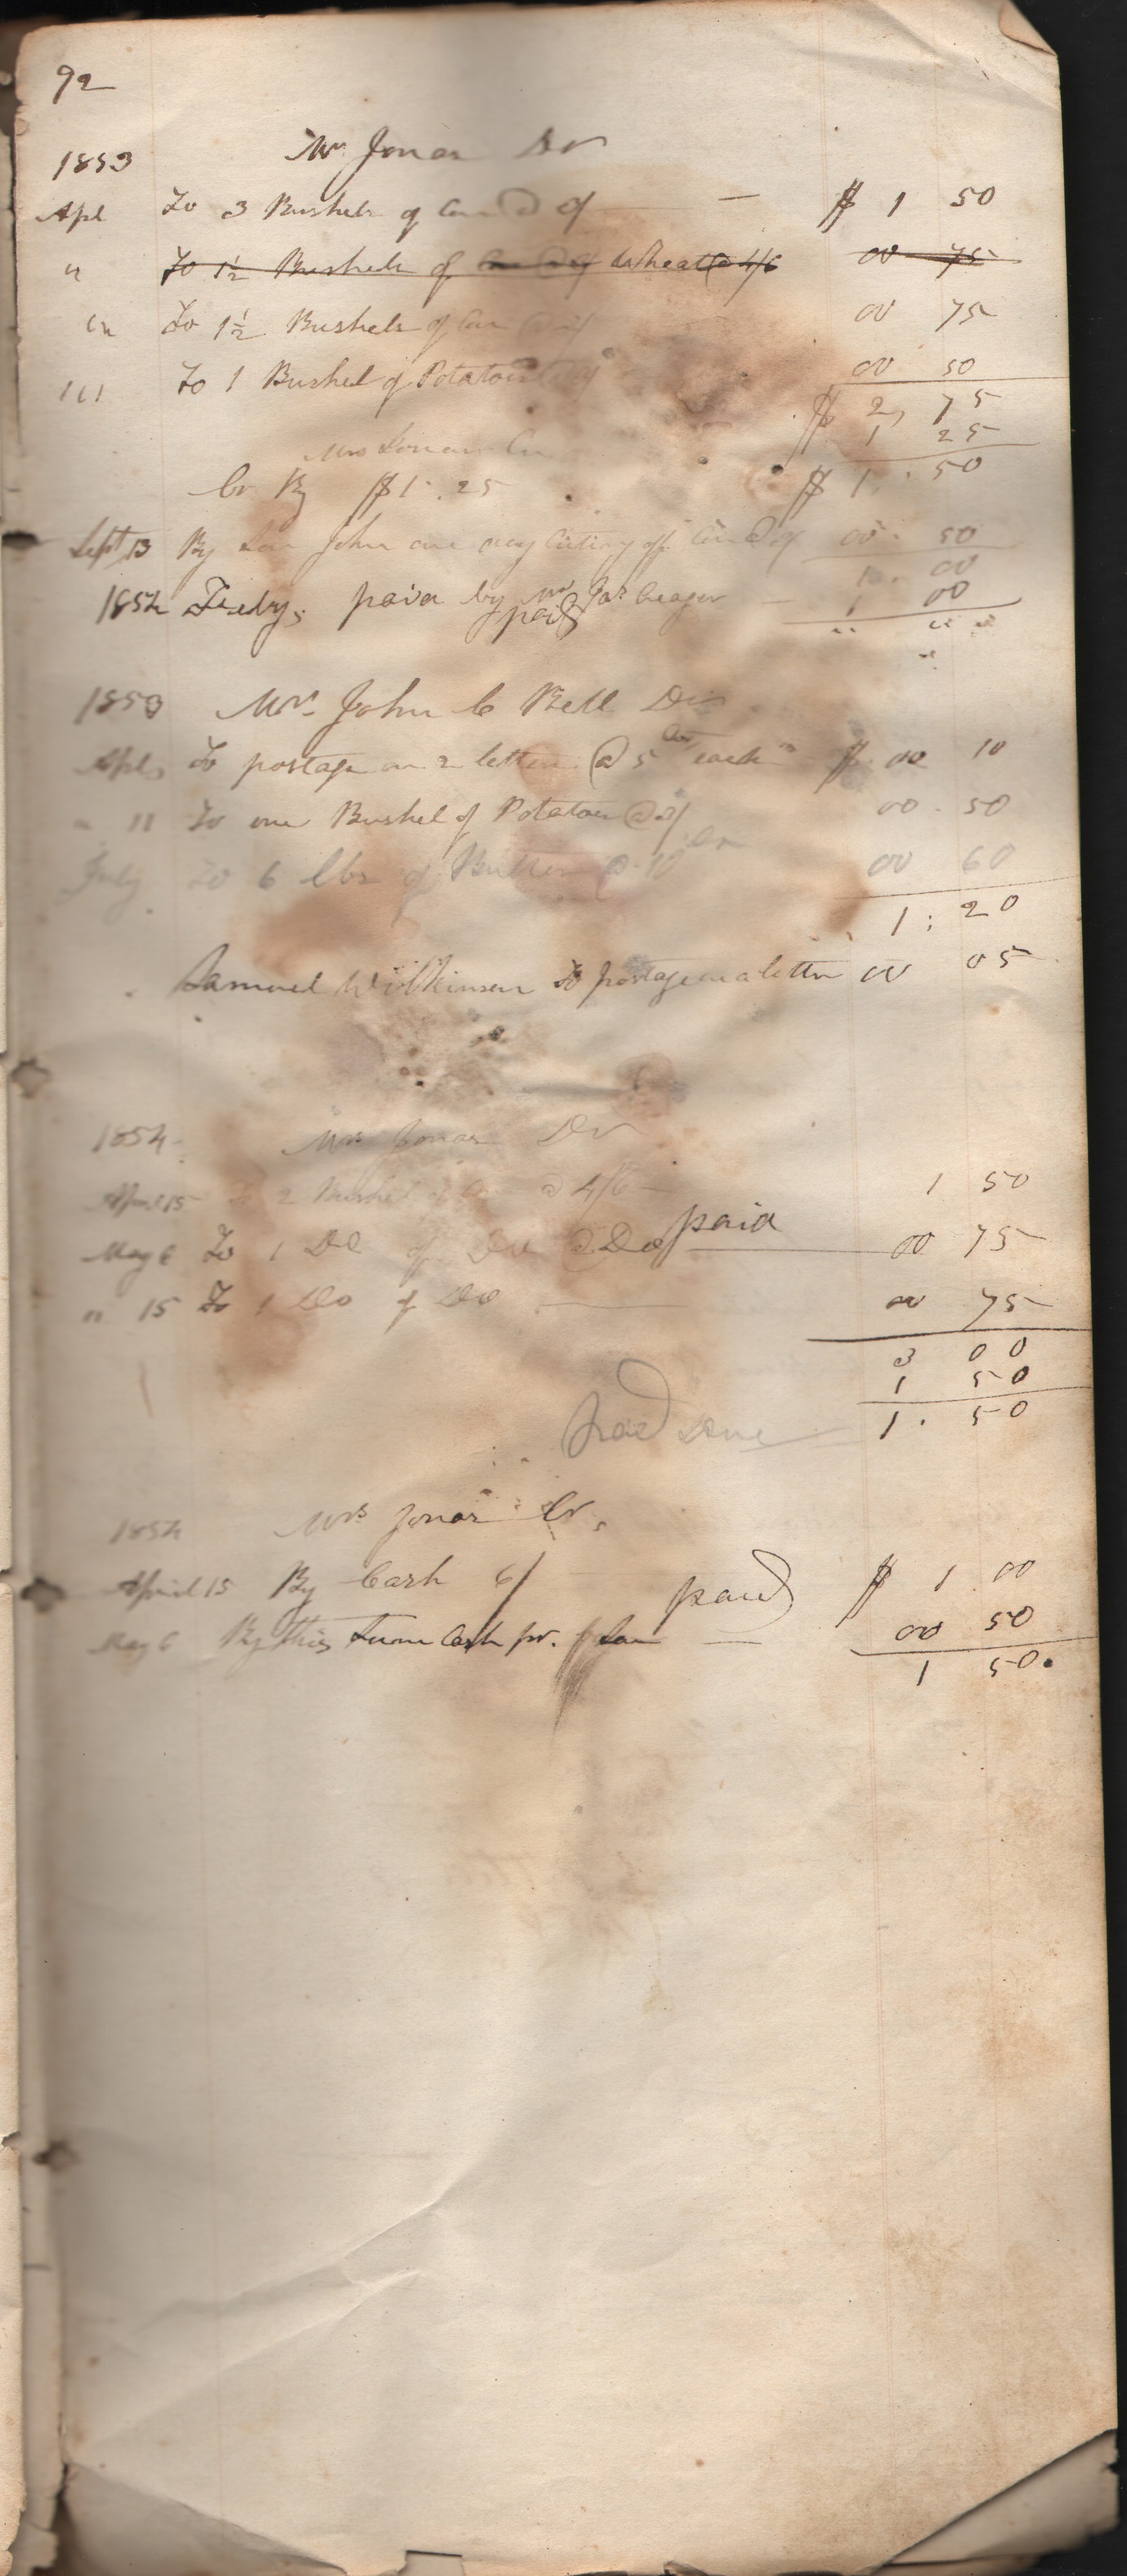 92
1853 Mr Jonas Dr
Apl To 3 Bushels of Corn @ 3/ — $ 1 50
" To 1½ Bushels of Wheat @ 4/6 00 75
" To 1½ Bushels of Corn 00 75
" To 1 Bushel of Potatoes 00 50
$ 2, 75
1 25
Mrs Jonas Cr
Cr By $1.25 $ 1. 50
Sept 13 By Son John one day cuting off Corn @ 3/ 00. 50
1. 00
1854 Feby, paid by Mr Jas — 1 00
paid " "
1853 Mr. John C Bell Dr
Apl To postage on 2 letters @ 5 cts each $ 00 10
" 11 To one Bushel of Potatoes @ 3/ 00. 50
July To 6 lbs of Butter @ 10 cts 00 60
1: 20
Samuel Wilkinson To postage on a letter 00 05
1854 Mrs Jonas Dr
April 15 To 2 Bushel of @ 4/6 — 1 50
paid
May 6 To 1 Do of Do @ Do 00 75
" 15 To 1 Do of Do — 00 75
3 00
1 50
paid 1. 50
1854 Mrs Jonas Cr.
April 15 By Cash 6/ paid $ 1 00
May 6 By this Sum Cash pr. Son — 00 50
1 50.